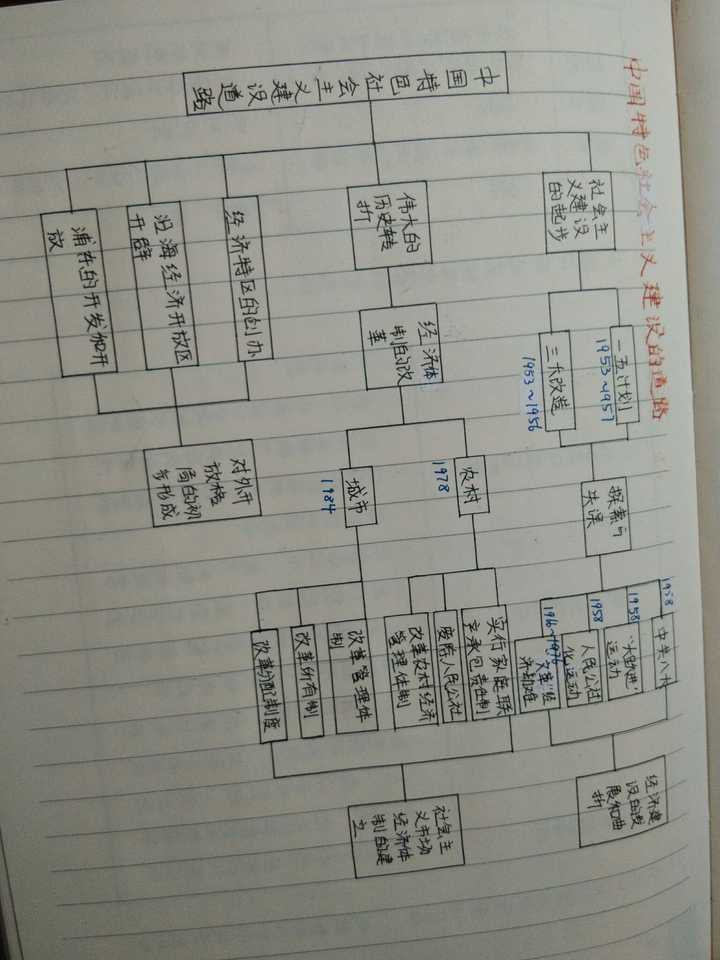 中国特色社会主义建设的道路
中国特色社
会主义建设
道路
社会主
义建设
的起步
一五计划
1953~1957
三大改造
1953~1956
探索与
失误
1958
中共八大
1958
"大跃进"
运动
1958
人民公社
化运动
"文革"经
济劫难
经济建
设的发
展和曲
折
伟大的
历史转
折
经济体
制的改
革
农村
1978
实行家庭联
产承包责任制
废除人民公社
改革农村经济
管理体制
城市
1984
改革管理体
制
改革所有制
改革分配制度
社会主
义市场
经济体
制的建
立
经济特区的创办
沿海经济开放区
开辟
浦东的开发和开
放
对外开
放格
局的初
步形成